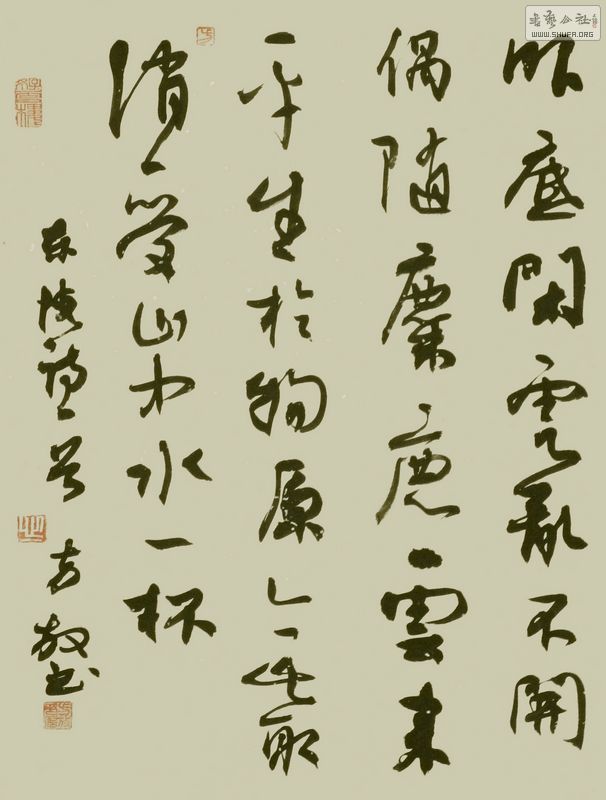 書藝公社
WWW.SHUFA.ORG
眼底閑雲亂不開
偶随麋鹿雲来
平生於物原無取
消受山中水一杯